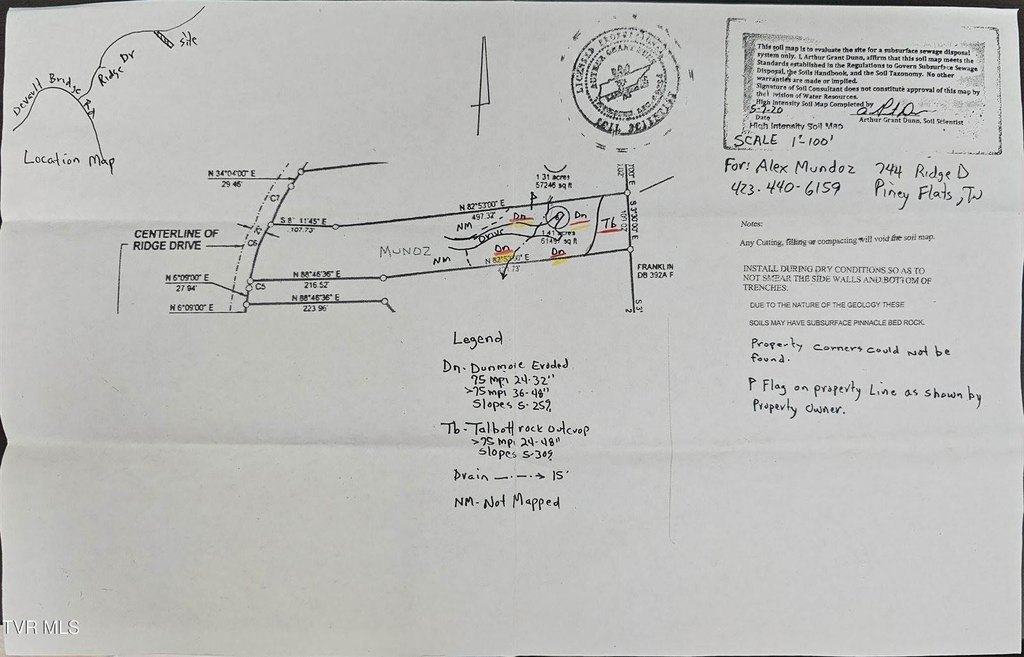 Site
Ridge Dr
Devault Bridge Rd
Location Map
LICENSED PROFESSIONAL
ARTHUR GRANT DUNN
SOIL SCIENTIST
This soil map is to evaluate the site for a subsurface sewage disposal
system only. I, Arthur Grant Dunn, affirm that this soil map meets the
Standards established in the Regulations to Govern Subsurface Sewage
Disposal, the Soils Handbook, and the Soil Taxonomy. No other
warranties are made or implied.
Signature of Soil Consultant does not constitute approval of this map by
the Division of Water Resources.
High Intensity Soil Map Completed by
5-7-20
Date
Arthur Grant Dunn, Soil Scientist
High Intensity Soil Map
SCALE 1"-100'
For: Alex Mundoz 744 Ridge D
423-440-6159 Piney Flats, TN
Notes:
Any Cutting, filling or compacting will void the soil map.
INSTALL DURING DRY CONDITIONS SO AS TO
NOT SMEAR THE SIDE WALLS AND BOTTOM OF
TRENCHES.
DUE TO THE NATURE OF THE GEOLOGY THESE
SOILS MAY HAVE SUBSURFACE PINNACLE BED ROCK.
Property Corners could not be
found.
P Flag on property Line as shown by
Property Owner.
N 34°04'00" E
29.46'
C7
1.31 acres
57246 sq ft
N 82°53'00" E
497.32'
P
Dn
Dn
Tb
S 3°30'00" E
100.02'
S 8 11'45" E
107.73'
25'
C6
CENTERLINE OF
RIDGE DRIVE
NM
Drive
1.41 acres
61497 sq ft
MUNOZ
NM
Dn
Dn
N 82°53'00" E
N 6°09'00" E
27.94'
C5
N 88°46'36" E
216.52'
FRANKLIN
DB 392A F
N 6°09'00" E
N 88°46'36" E
223.96'
S 3°
2
Legend
Dn- Dunmore Eroded
75 mpi 24-32"
>75 mpi 36-48"
Slopes 5-25%
Tb- Talbott rock outcrop
>75 mpi 24-48"
Slopes 5-30%
Drain 15'
NM- Not Mapped
TVR MLS